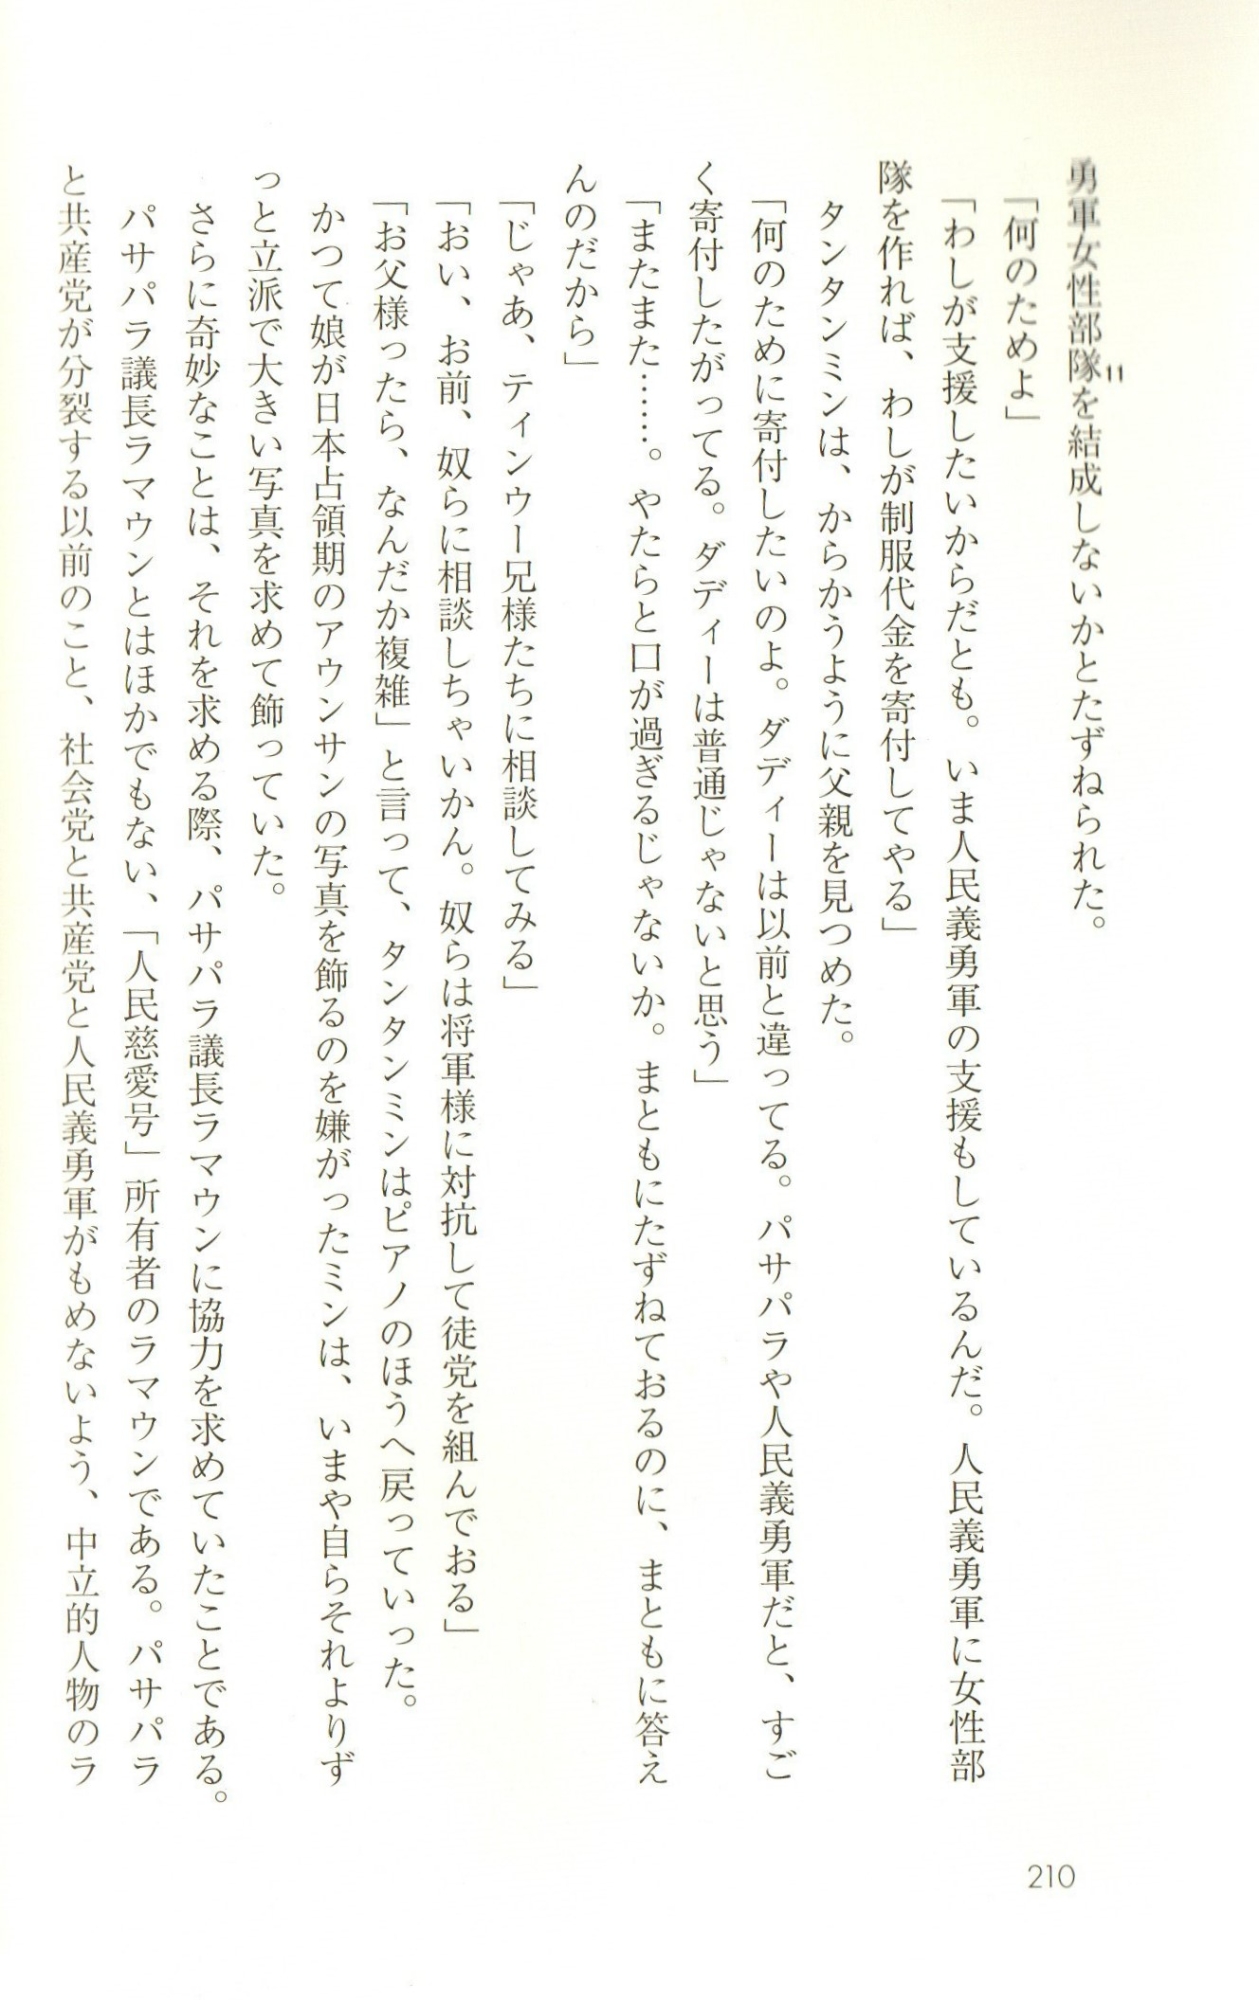 勇軍女性部隊11を結成しないかとたずねられた。
「何のためよ」
「わしが支援したいからだとも。いま人民義勇軍の支援もしているんだ。人民義勇軍に女性部
隊を作れば、わしが制服代金を寄付してやる」
タンタンミンは、からかうように父親を見つめた。
「何のために寄付したいのよ。ダディーは以前と違ってる。パサパラや人民義勇軍だと、すご
く寄付したがってる。ダディーは普通じゃないと思う」
「またまた……。やたらと口が過ぎるじゃないか。まともにたずねておるのに、まともに答え
んのだから」
「じゃあ、ティンウー兄様たちに相談してみる」
「おい、お前、奴らに相談しちゃいかん。奴らは将軍様に対抗して徒党を組んでおる」
「お父様ったら、なんだか複雑」と言って、タンタンミンはピアノのほうへ戻っていった。
かつて娘が日本占領期のアウンサンの写真を飾るのを嫌がったミンは、いまや自らそれよりず
っと立派で大きい写真を求めて飾っていた。
さらに奇妙なことは、それを求める際、パサパラ議長ラマウンに協力を求めていたことである。
パサパラ議長ラマウンとはほかでもない、「人民慈愛号」所有者のラマウンである。パサパラ
と共産党が分裂する以前のこと、社会党と共産党と人民義勇軍がもめないよう、中立的人物のラ
210